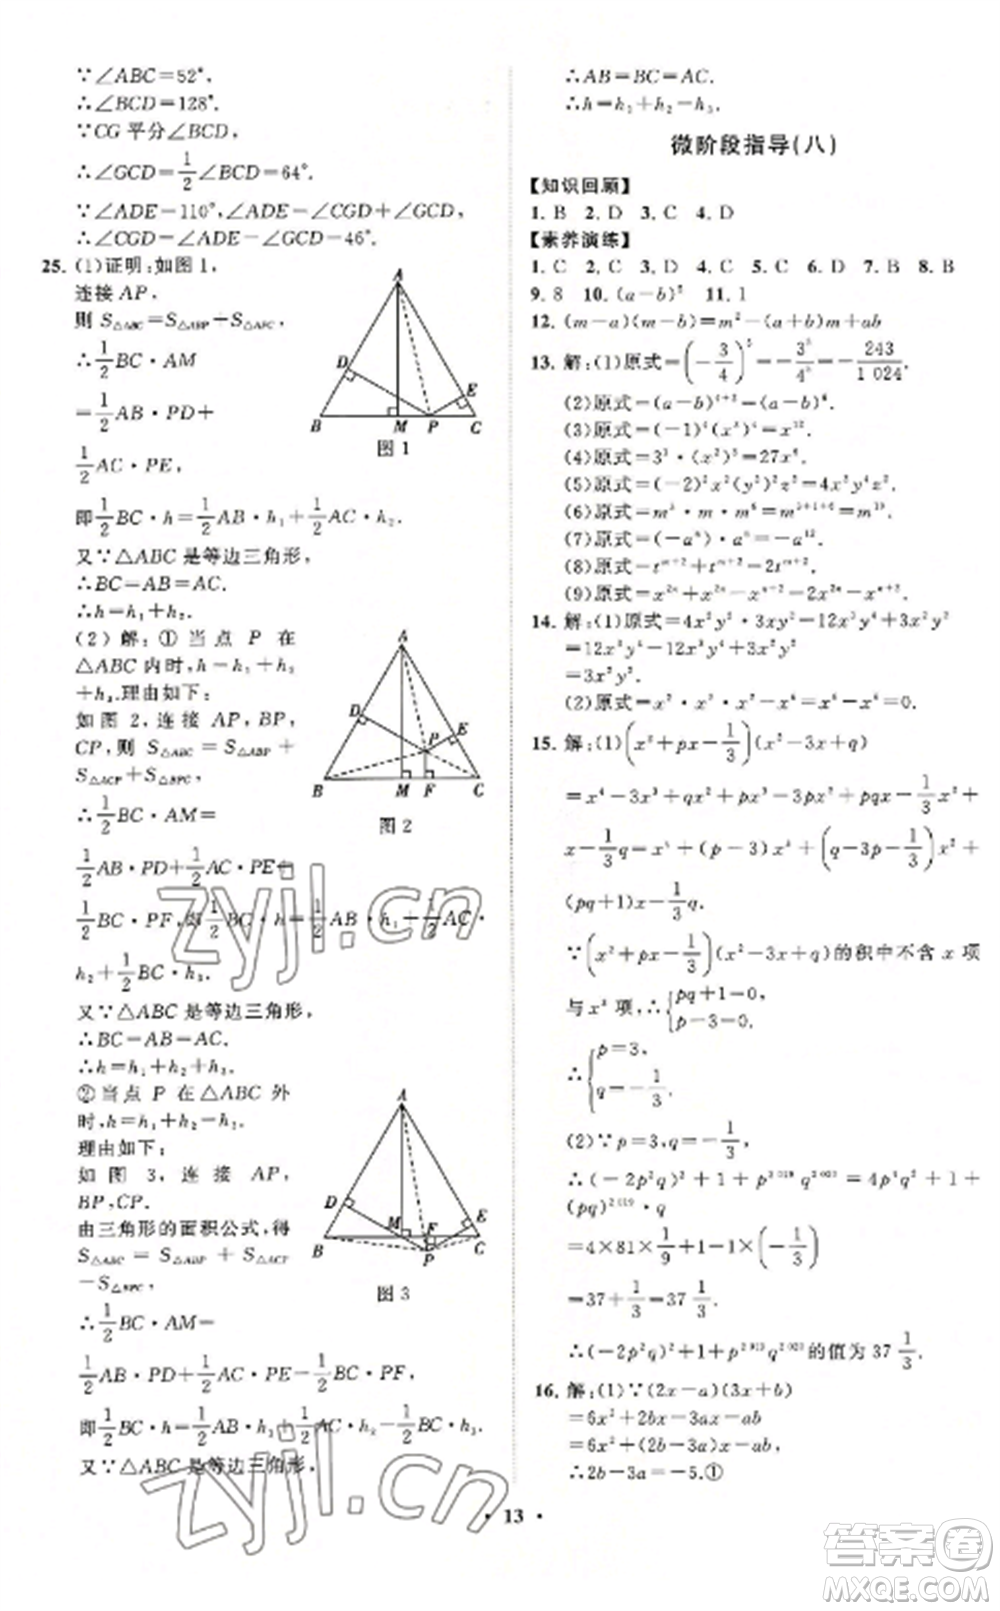 ∵∠ABC=52°,
∴∠BCD=128°.
∵CG 平分∠BCD,
∴∠GCD=1/2∠BCD=64°.
∵∠ADE=110°,∠ADE=∠CGD+∠GCD,
∴∠CGD=∠ADE-∠GCD=46°.
25. (1)证明:如图 1,
连接 AP,
则 S△ABC=S△ABP+S△APC,
∴1/2BC·AM
=1/2AB·PD+
1/2AC·PE,
A
D
E
B
M
P
C
图 1
即1/2BC·h=1/2AB·h₁+1/2AC·h₂.
又∵△ABC 是等边三角形,
∴BC=AB=AC.
∴h=h₁+h₂.
(2)解:①当点 P 在
△ABC 内时,h=h₁+h₂
+h₃.理由如下:
如图 2,连接 AP,BP,
CP,则 S△ABC=S△ABP+
S△ACP+S△BPC,
∴1/2BC·AM=
A
D
E
P
B
M
F
C
图 2
1/2AB·PD+1/2AC·PE+
1/2BC·PF,即1/2BC·h=1/2AB·h₁+1/2AC·
h₂+1/2BC·h₃.
又∵△ABC 是等边三角形,
∴BC=AB=AC.
∴h=h₁+h₂+h₃.
②当点 P 在△ABC 外
时,h=h₁+h₂-h₃.
理由如下:
如图 3,连接 AP,
BP,CP.
由三角形的面积公式,得
S△ABC=S△ABP+S△ACP
-S△BPC,
∴1/2BC·AM=
A
D
M
F
E
B
P
C
图 3
1/2AB·PD+1/2AC·PE-1/2BC·PF,
即1/2BC·h=1/2AB·h₁+1/2AC·h₂-1/2BC·h₃.
又∵△ABC 是等边三角形,
∴AB=BC=AC.
∴h=h₁+h₂-h₃.
微阶段指导(八)
【知识回顾】
1. B 2. D 3. C 4. D
【素养演练】
1. C 2. C 3. C 4. D 5. C 6. D 7. B 8. B
9. 8 10. (a-b)⁸ 11. 1
12. (m-a)(m-b)=m²-(a+b)m+ab
13. 解:(1)原式=(-3/4)⁵=-3⁵/4⁵=-243/1 024.
(2)原式=(a-b)⁴⁺²=(a-b)⁶.
(3)原式=(-1)⁴(x³)⁴=x¹².
(4)原式=3³·(x²)³=27x⁶.
(5)原式=(-2)²x²(y²)²z²=4x²y⁴z².
(6)原式=m³·m·m⁶=m³⁺¹⁺⁶=m¹⁰.
(7)原式=(-a⁶)·a⁶=-a¹².
(8)原式=tᵐ⁺²+tᵐ⁺²=2tᵐ⁺².
(9)原式=x²ⁿ+x²ⁿ-xⁿ⁺²=2x²ⁿ-xⁿ⁺².
14. 解:(1)原式=4x²y²·3xy²-12x³y³-12x³y²
=12x³y⁴…
(2)原式=x²·x²·x²-x⁶=x⁶-x⁶=0.
15. 解:(1)(x²+px-1/3)(x²-3x+q)
=x⁴-3x³+qx²+px³-3px²+pqx-1/3x²+
x-1/3q=x⁴+(p-3)x³+(q-3p-1/3)x²+
(pq+1)x-1/3q.
∵(x²+px-1/3)(x²-3x+q)的积中不含 x 项
与 x³ 项,∴{pq+1=0, p-3=0.
∴{p=3, q=-1/3.
(2)∵p=3,q=-1/3,
(pq)²⁰¹⁹·q
=4×81×1/9+1+1×(-1/3)
=37+1/3=37 1/3.
16. 解:(1)∵(2x-a)(3x+b)
=6x²+2bx-3ax-ab
=6x²+(2b-3a)x-ab,
∴2b-3a=-5.①
· 13 ·
zyjl.cn
zyjl.cn
答案圈
MXQE.COM